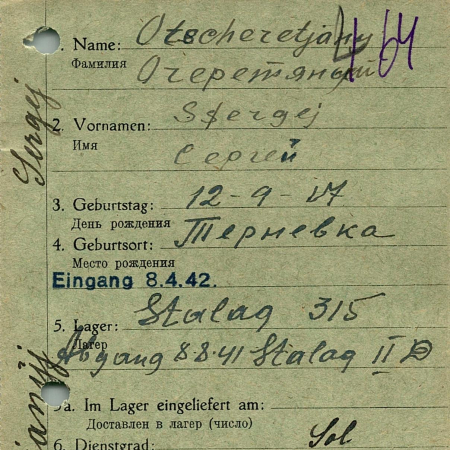 1. Name: Otscheretjany 164
Фамилия Очеретяный
2. Vornamen: Ssergej
Имя Сергей
3. Geburtstag: 12-9-17
День рождения
4. Geburtsort: Терневка
Место рождения
Eingang 8.4.42.
5. Lager: Stalag 315
Лагер
Abgang 8.8.41 Stalag II D
5a. Im Lager eingeliefert am:
Доставлен в лагер (число)
6. Dienstgrad: Sol
Sergej